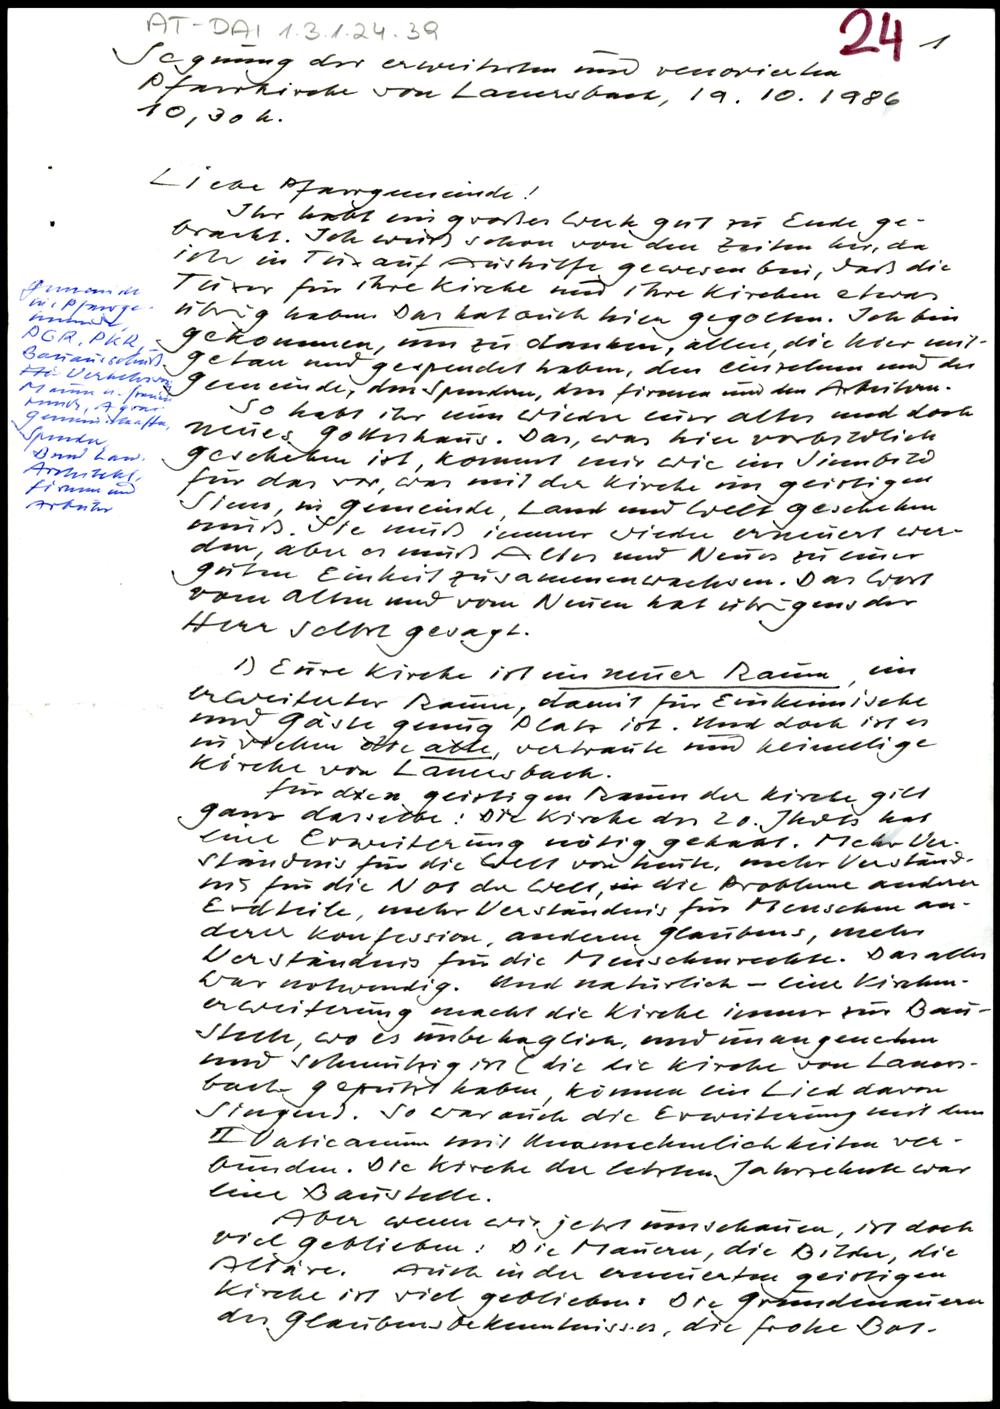 AT-DAI 1.3.1.24.39
24 1
Segnung der erweiterten und renovierten
Pfarrkirche von Lanersbach, 19. 10. 1986
10,30 h.
Liebe Pfarrgemeinde!
Ihr habt ein großes Werk gut zu Ende ge-
bracht. Ich weiß schon von den Zeiten her, da
ich in Tux auf Aushilfe gewesen bin, daß die
Tuxer für ihre Kirche und ihre Kirchen etwas
übrig haben. Das hat auch hier gegolten. Ich bin
gekommen, um zu danken, allen, die hier mit-
getan und gespendet haben, den einzelnen und der
Gemeinde, den Spendern, den Firmen und den Arbeitern.
Gemeinde
die Pfarrge-
meinde,
PGR, PKR,
Bauausschuß,
Verkehrsv
Agrar
gemeinschaften,
Spender,
Land
Architekt,
Firmen und
Arbeiter
So habt ihr nun wieder euer altes und doch
neues Gotteshaus. Das, was hier vorbildlich
geschehen ist, kommt mir wie ein Sinnbild
für das vor, was mit der Kirche im geistigen
Sinn, in Gemeinde, Land und Welt geschehen
muß. Sie muß immer wieder erneuert wer-
den, aber es muß Altes und Neues zu einer
guten Einheit zusammenwachsen. Das Wort
vom Alten und vom Neuen hat übrigens der
Herr selbst gesagt.
1) Eure Kirche ist ein neuer Raum, ein
erweiterter Raum, damit für Einheimische
und Gäste genug Platz ist. Und doch ist es
die alte, vertraute und heimelige
Kirche von Lanersbach.
Für den geistigen Raum der Kirche gilt
ganz dasselbe: Die Kirche des 20. Jhdts hat
eine Erweiterung nötig gehabt. Mehr Ver-
ständnis für die Welt von heute, mehr Verständ-
nis für die Not der Welt, die Probleme anderer
Erdteile, mehr Verständnis für Menschen an-
derer Konfession, anderen Glaubens, mehr
Verständnis für die Menschenrechte. Das alles
war notwendig. Und natürlich – eine Kirchen-
erweiterung macht die Kirche immer zur Bau-
stelle, wo es unbehaglich, und unangenehm
und schmutzig ist (die die Kirche von Laners-
bach geputzt haben, können ein Lied davon
singen). So war auch die Erweiterung mit dem
II Vaticanum mit Unannehmlichkeiten ver-
bunden. Die Kirche der letzten Jahrzehnte war
eine Baustelle.
Aber wenn wir jetzt umschauen, ist doch
viel geblieben: Die Mauern, die Bilder, die
Altäre. Auch in der erneuerten geistigen
Kirche ist viel geblieben: Die Grundmauern
des Glaubensbekenntnisses, die frohe Bot-